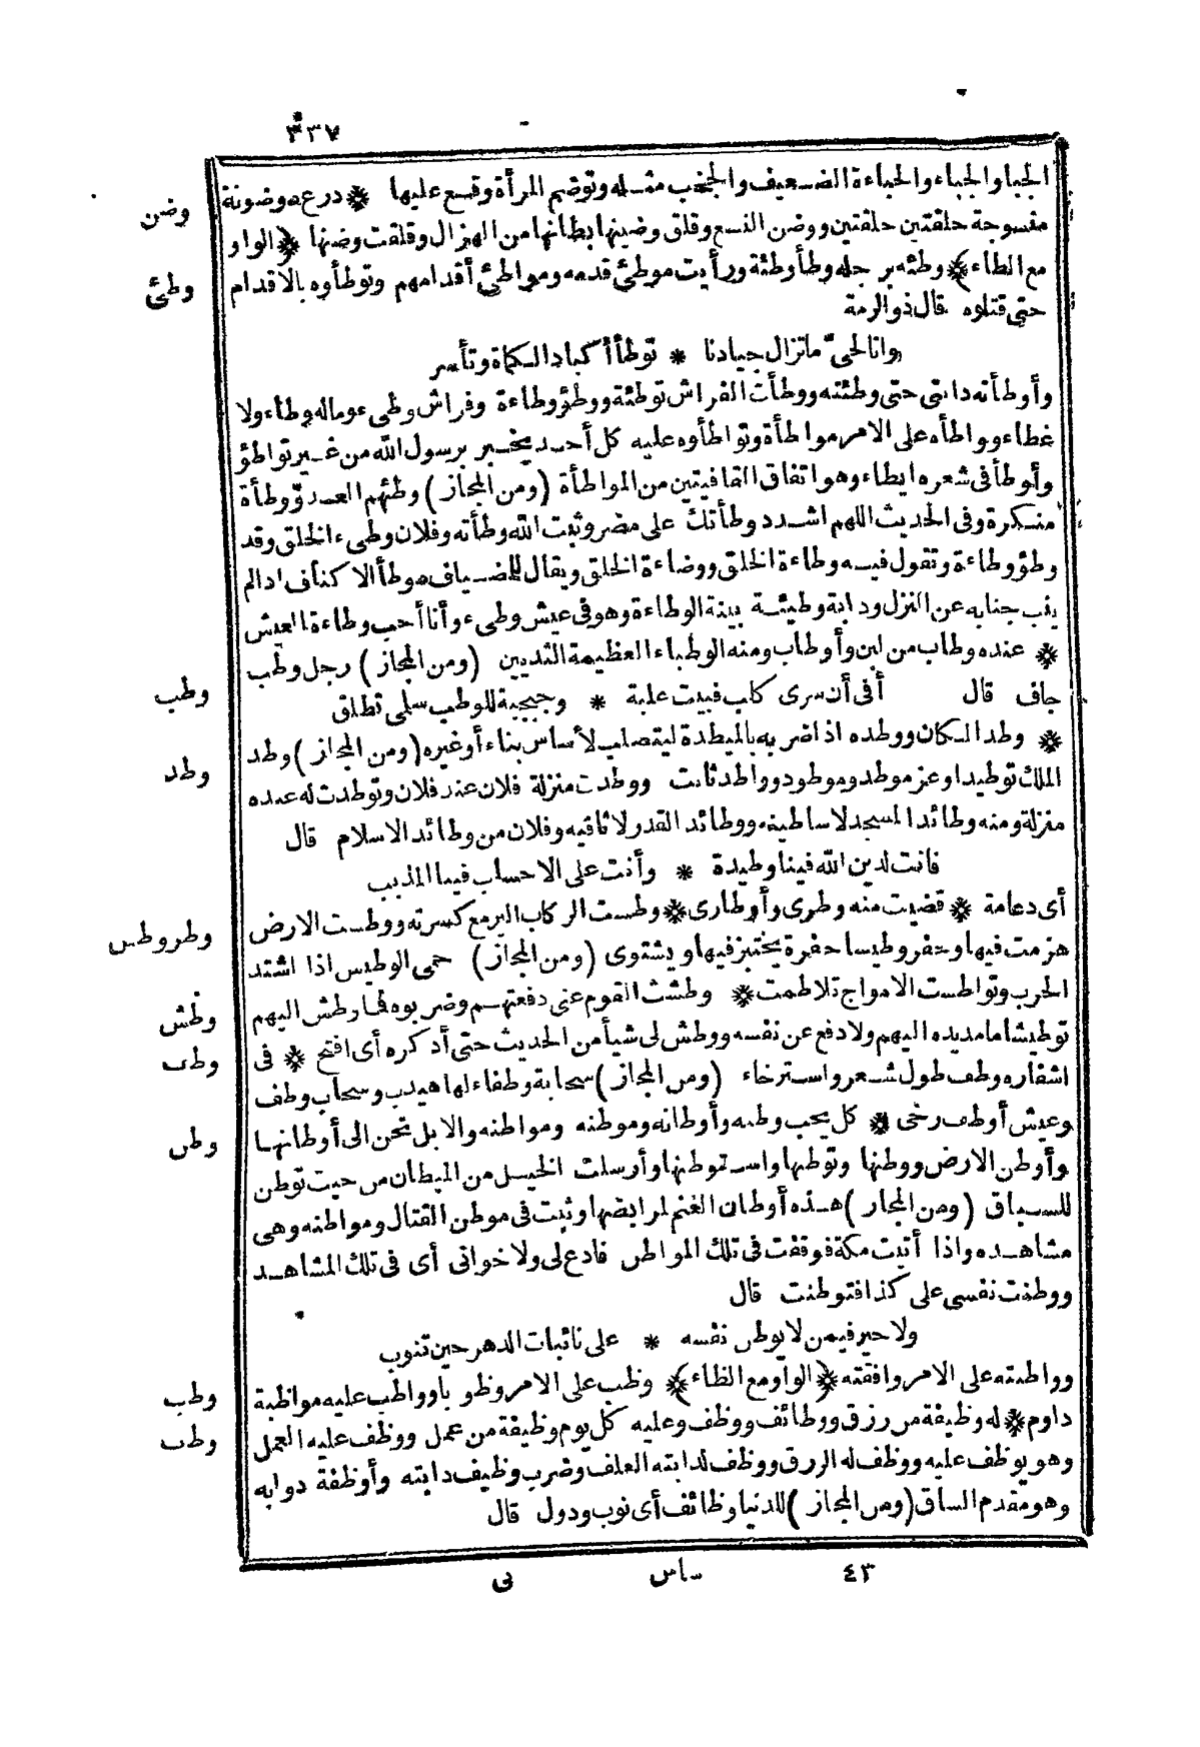 ٣٣٧
الجبا والجباء والجباءة الضعيف والجخب مثله وتوضم المرأة وقع عليها * درع موضونة
وضن
منسوجة حلقتين حلقتين ووضن النسع وقلق وضينها بطانها من الهزال وقلقت وضنها ﴿الواو
مع الطاء﴾ * وطئه برجله وطأ وطئة ورأيت موطئ قدمه ومواطئ أقدامهم وتوطأوه بالاقدام
وطئ
حتى قتلوه قال ذو الرمة
وانا لحىّ ما تزال جيادنا * توطأ أكباد الكماة وتأسر
وأوطأته دابتى حتى وطئته ووطأت الفراش توطئة ووطؤ وطاءة وفراش وطىء وماله وطاء ولا
غطاء وواطأه على الامر مواطأة وتواطأوه عليه كل أحد يخبر برسول الله من غير تواطؤ
وأوطأ فى شعره ايطاء وهو اتفاق القافيتين من المواطأة (ومن المجاز) وطئهم العدوّ وطأة
منكرة وفى الحديث اللهم اشدد وطأتك على مضر وثبت الله وطأته وفلان وطىء الخلق وقد
وطؤ وطاءة وتقول فيه وطاءة الخلق ووضاءة الخلق ويقال للمضياف موطأ الاكناف اذا لم
ينب جنابه عن النزل ودابة وطيئة بينة الوطاءة وهو فى عيش وطىء وأنا أحب وطاءة العيش
* عنده وطاب من لبن وأوطاب ومنه الوطباء العظيمة الثديين (ومن المجاز) رجل وطب
وطب
جاف قال أفى أن سرى كلب فبيت علبة * وجبجبة للوطب سلمى تطلق
* وطد المكان ووطده اذا ضربه بالميطدة ليتصلب لأساس بناء أو غيره (ومن المجاز) وطد
وطد
الملك توطيدا وعز موطد وموطود وواطد ثابت ووطدت منزلة فلان عند فلان وتوطدت له عنده
منزلة ومنه وطائد المسجد لاساطينه ووطائد القدر لاثافيه وفلان من وطائد الاسلام قال
فانت لدين الله فينا وطيدة * وأنت على الاحساب فينا المذبب
أى دعامة * قضيت منه وطرى وأوطارى * وطست الركاب اليرمع كسرته ووطست الارض
وطر وطس
هزمت فيها وحفر وطيسا حفرة يختبز فيها ويشتوى (ومن المجاز) حمى الوطيس اذا اشتد
الحرب وتواطست الامواج تلاطمت * وطشت القوم عنى دفعتهم وضربوه فما وطش اليهم
وطش
توطيشا ما مد يده اليهم ولا دفع عن نفسه ووطش لى شيأ من الحديث حتى أذكره أى افتح * فى
وطف
اشفاره وطف طول شعر واسترخاء (ومن المجاز) سحابة وطفاء لها هيدب وسحاب وطف
وعيش أوطف رخى * كل يحب وطنه وأوطانه وموطنه ومواطنه والابل تحن الى أوطانها
وطن
وأوطن الارض ووطنها وتوطنها واستوطنها وأرسلت الخيل من الميطان من حيث توطن
للسباق (ومن المجاز) هذه أوطان الغنم لمرابضها وثبت فى موطن القتال ومواطنه وهى
مشاهده واذا أتيت مكة فوقفت فى تلك المواطن فادع لى ولاخوانى أى فى تلك المشاهد
ووطنت نفسى على كذا فتوطنت قال
ولا خير فيمن لا يوطن نفسه * على نائبات الدهر حين تنوب
وواطنته على الامر وافقته * ﴿الواو مع الظاء﴾ * وظب على الامر وظوبا وواظب عليه مواظبة
وظب
داوم * له وظيفة من رزق ووظائف ووظف وعليه كل يوم وظيفة من عمل ووظف عليه العمل
وظف
وهو يوظف عليه ووظف له الرزق ووظف لدابته العلف وضرب وظيف دابته وأوظفة دوابه
وهو مقدم الساق (ومن المجاز) للدنيا وظائف أى نوب ودول قال
٤٣ ساس نى